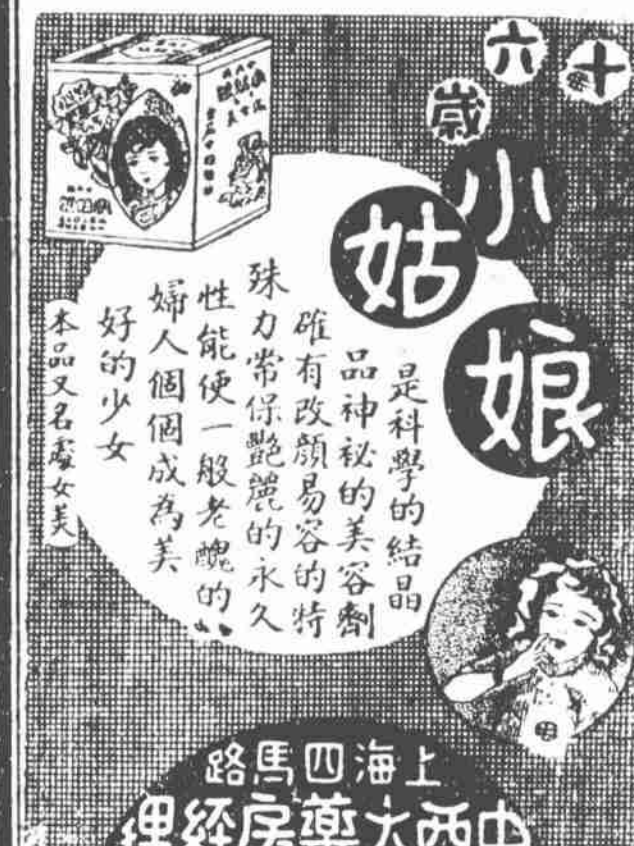 十六歲
小姑娘
是科學的結晶
品神祕的美容劑
確有改顏易容的特
殊力常保艷麗的永久
性能使一般老醜的
婦人個個成為美
好的少女
本品又名處女美
上海四馬路
中西大藥房經理